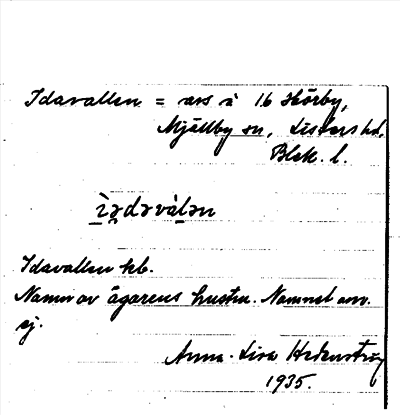 Idavallen = avs å 16 Hörby,
Mjällby sn, Listers hd,
Blek. l.
ìə̯dəvàlən
Idavallen kb.
Namn av ägarens hustru. Namnet anv.
ej.
Anna-Lisa Hedenström
1935.